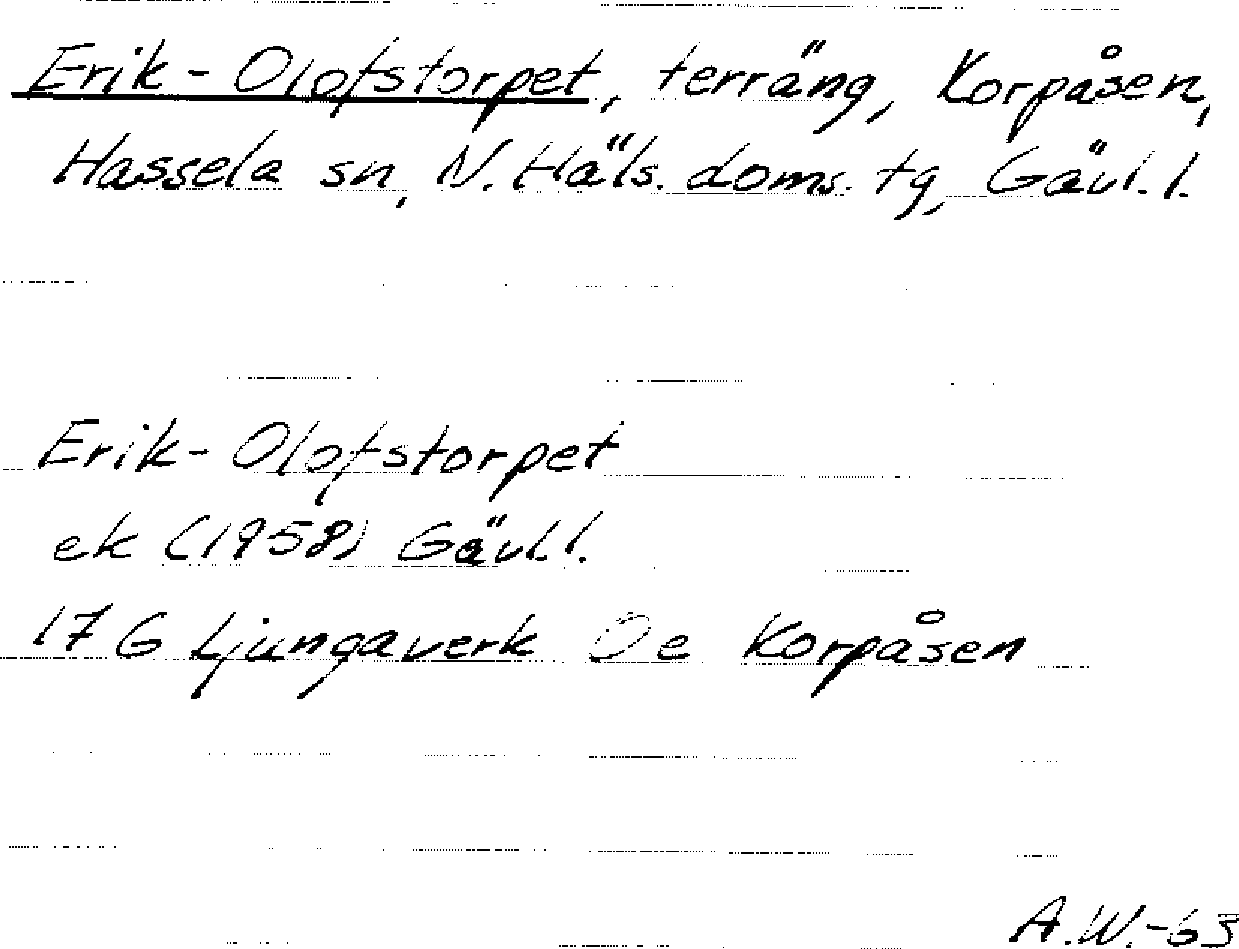 Erik-Olofstorpet, terräng, Korpåsen,
Hassela sn, N. Häls. doms. tg, Gävl. l.
Erik-Olofstorpet
ek (1958) Gävl. l.
17 G Ljungaverk Oe Korpåsen
A.W.-63